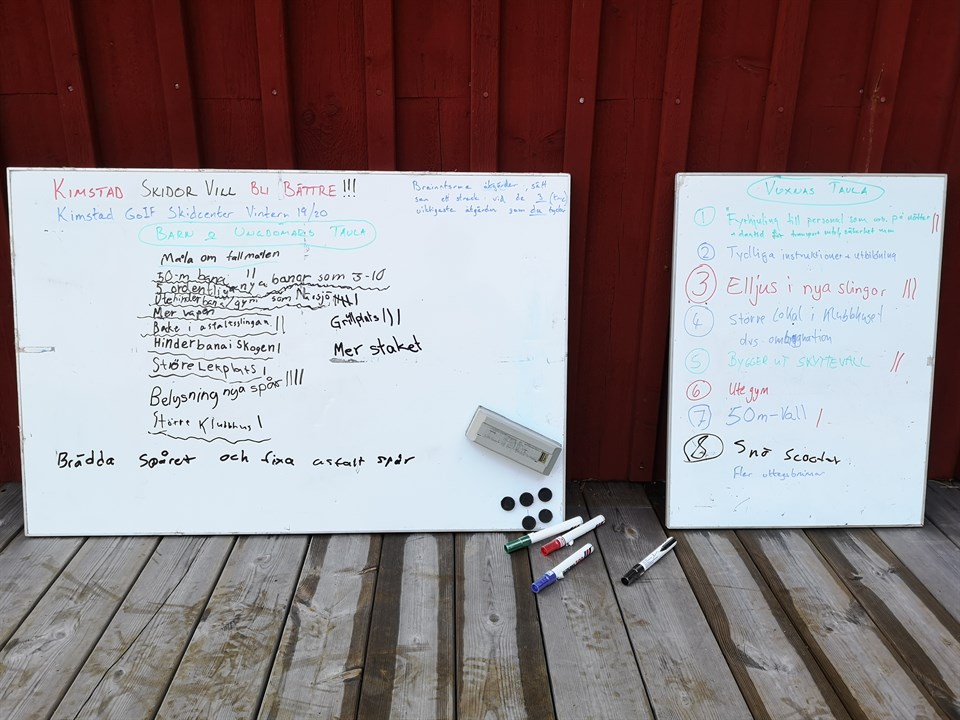 KIMSTAD SKIDOR VILL BLI BÄTTRE!!!
Kimstad GoIF Skidcenter Vintern 19/20
Brainstorma åtgärder, sätt
sen ett streck vid de 3 (tre)
viktigaste åtgärden som du tycker
BARN & UNGDOMARS TAVLA
Måla om fallmålen
50-m bana II
5 ordentliga nya banor som 3-10
Utehinderbana/gym som Nässjö
Mer vapen
Backe i asfaltsslingan II
Hinderbana i skogen I
Större Lekplats I
Belysning nya spår IIII
Större Klubbhus I
Grillplats III
Mer staket
Brädda spåret och fixa asfalt spår
VUXNAS TAVLA
1 Fyrhjuling till personal som åk. på
2 Tydliga instruktioner + utbildning
3 Elljus i nya slingor III
4 Större lokal i klubbhuset
dvs ombyggnation
5 BYGGER UT SKYTTEVALL II
6 Utegym
7 50m-Vall I
8 Snö scooter
Fler